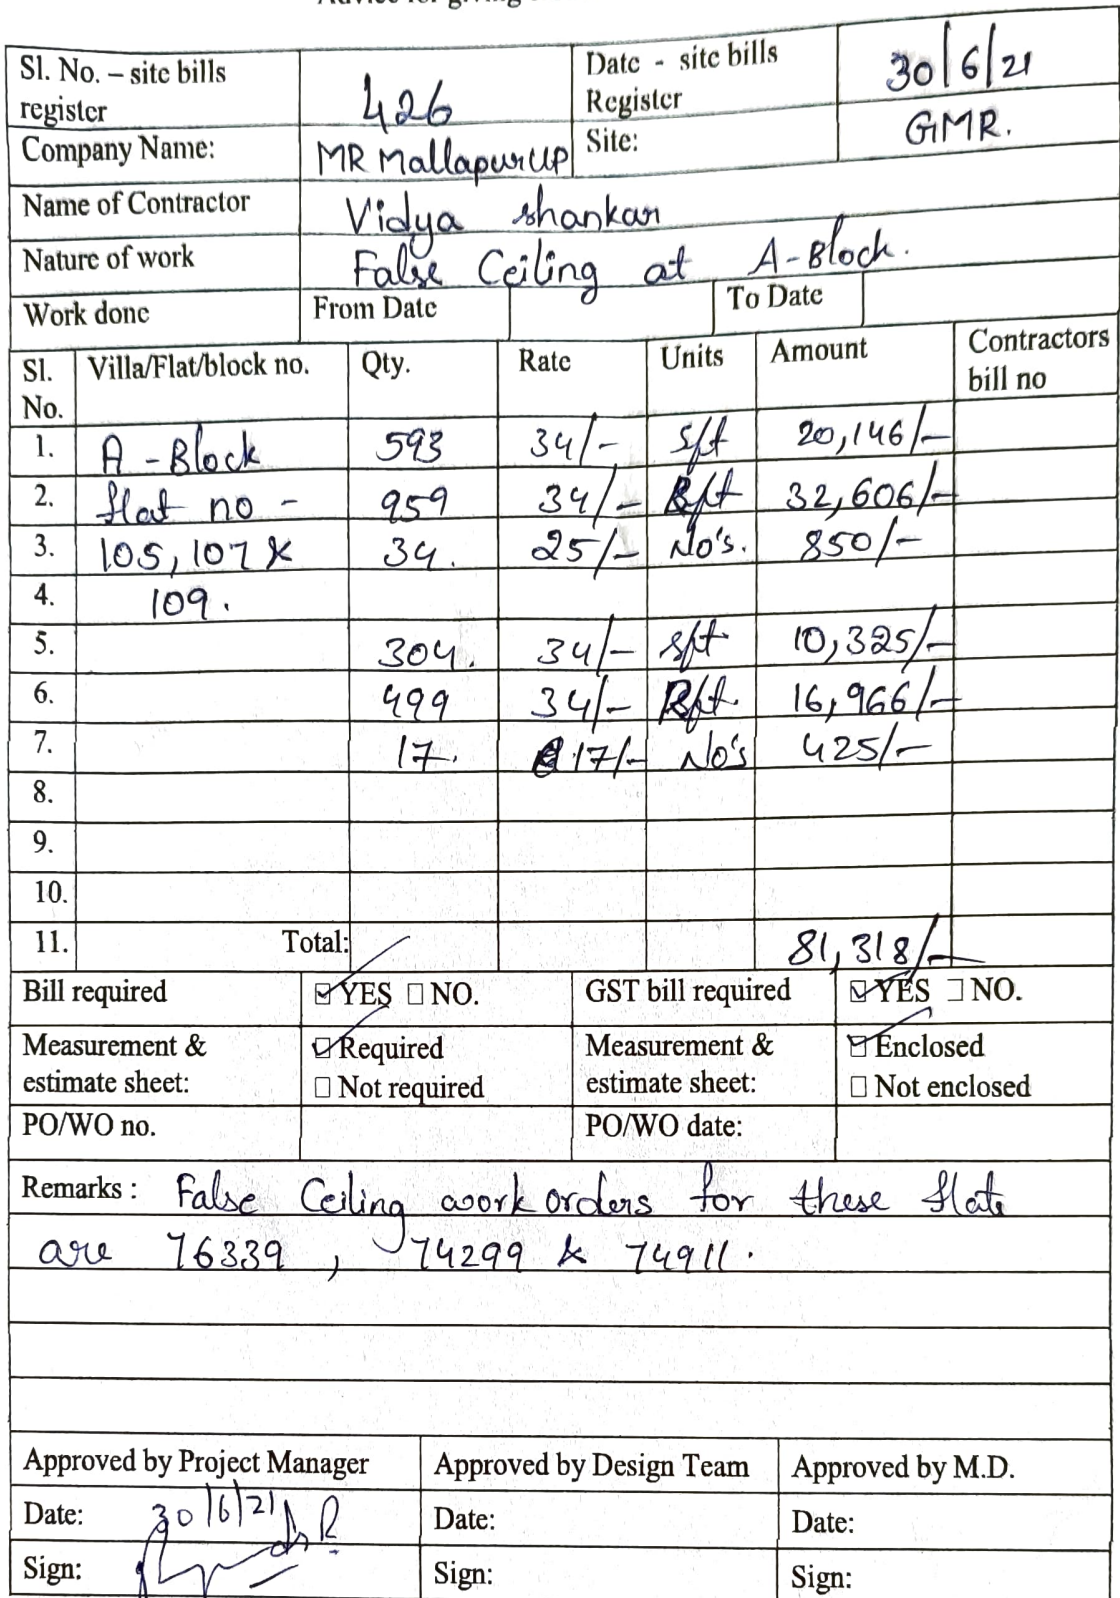 Sl. No. – site bills register 426 Date - site bills Register 30/6/21
Company Name: MR MallapurUP Site: GMR.
Name of Contractor Vidya shankar
Nature of work False Ceiling at A-Block.
Work done From Date To Date
Sl. No. Villa/Flat/block no. Qty. Rate Units Amount Contractors bill no
1. A - Block 593 34/- sft 20,146/-
2. flat no - 959 34/- Rft 32,606/-
3. 105, 107 & 34. 25/- No's. 850/-
4. 109.
5. 304. 34/- sft 10,325/-
6. 499 34/- Rft. 16,966/-
7. 17. 17/- No's 425/-
8.
9.
10.
11. Total: 81,318/-
Bill required ☑YES □NO. GST bill required ☑YES □NO.
Measurement & estimate sheet: ☑Required □Not required Measurement & estimate sheet: ☑Enclosed □Not enclosed
PO/WO no. PO/WO date:
Remarks : False Ceiling work orders for these flats
are 76339 , 74299 & 74911.
Approved by Project Manager Approved by Design Team Approved by M.D.
Date: 30/6/21 Date: Date:
Sign: Sign: Sign: